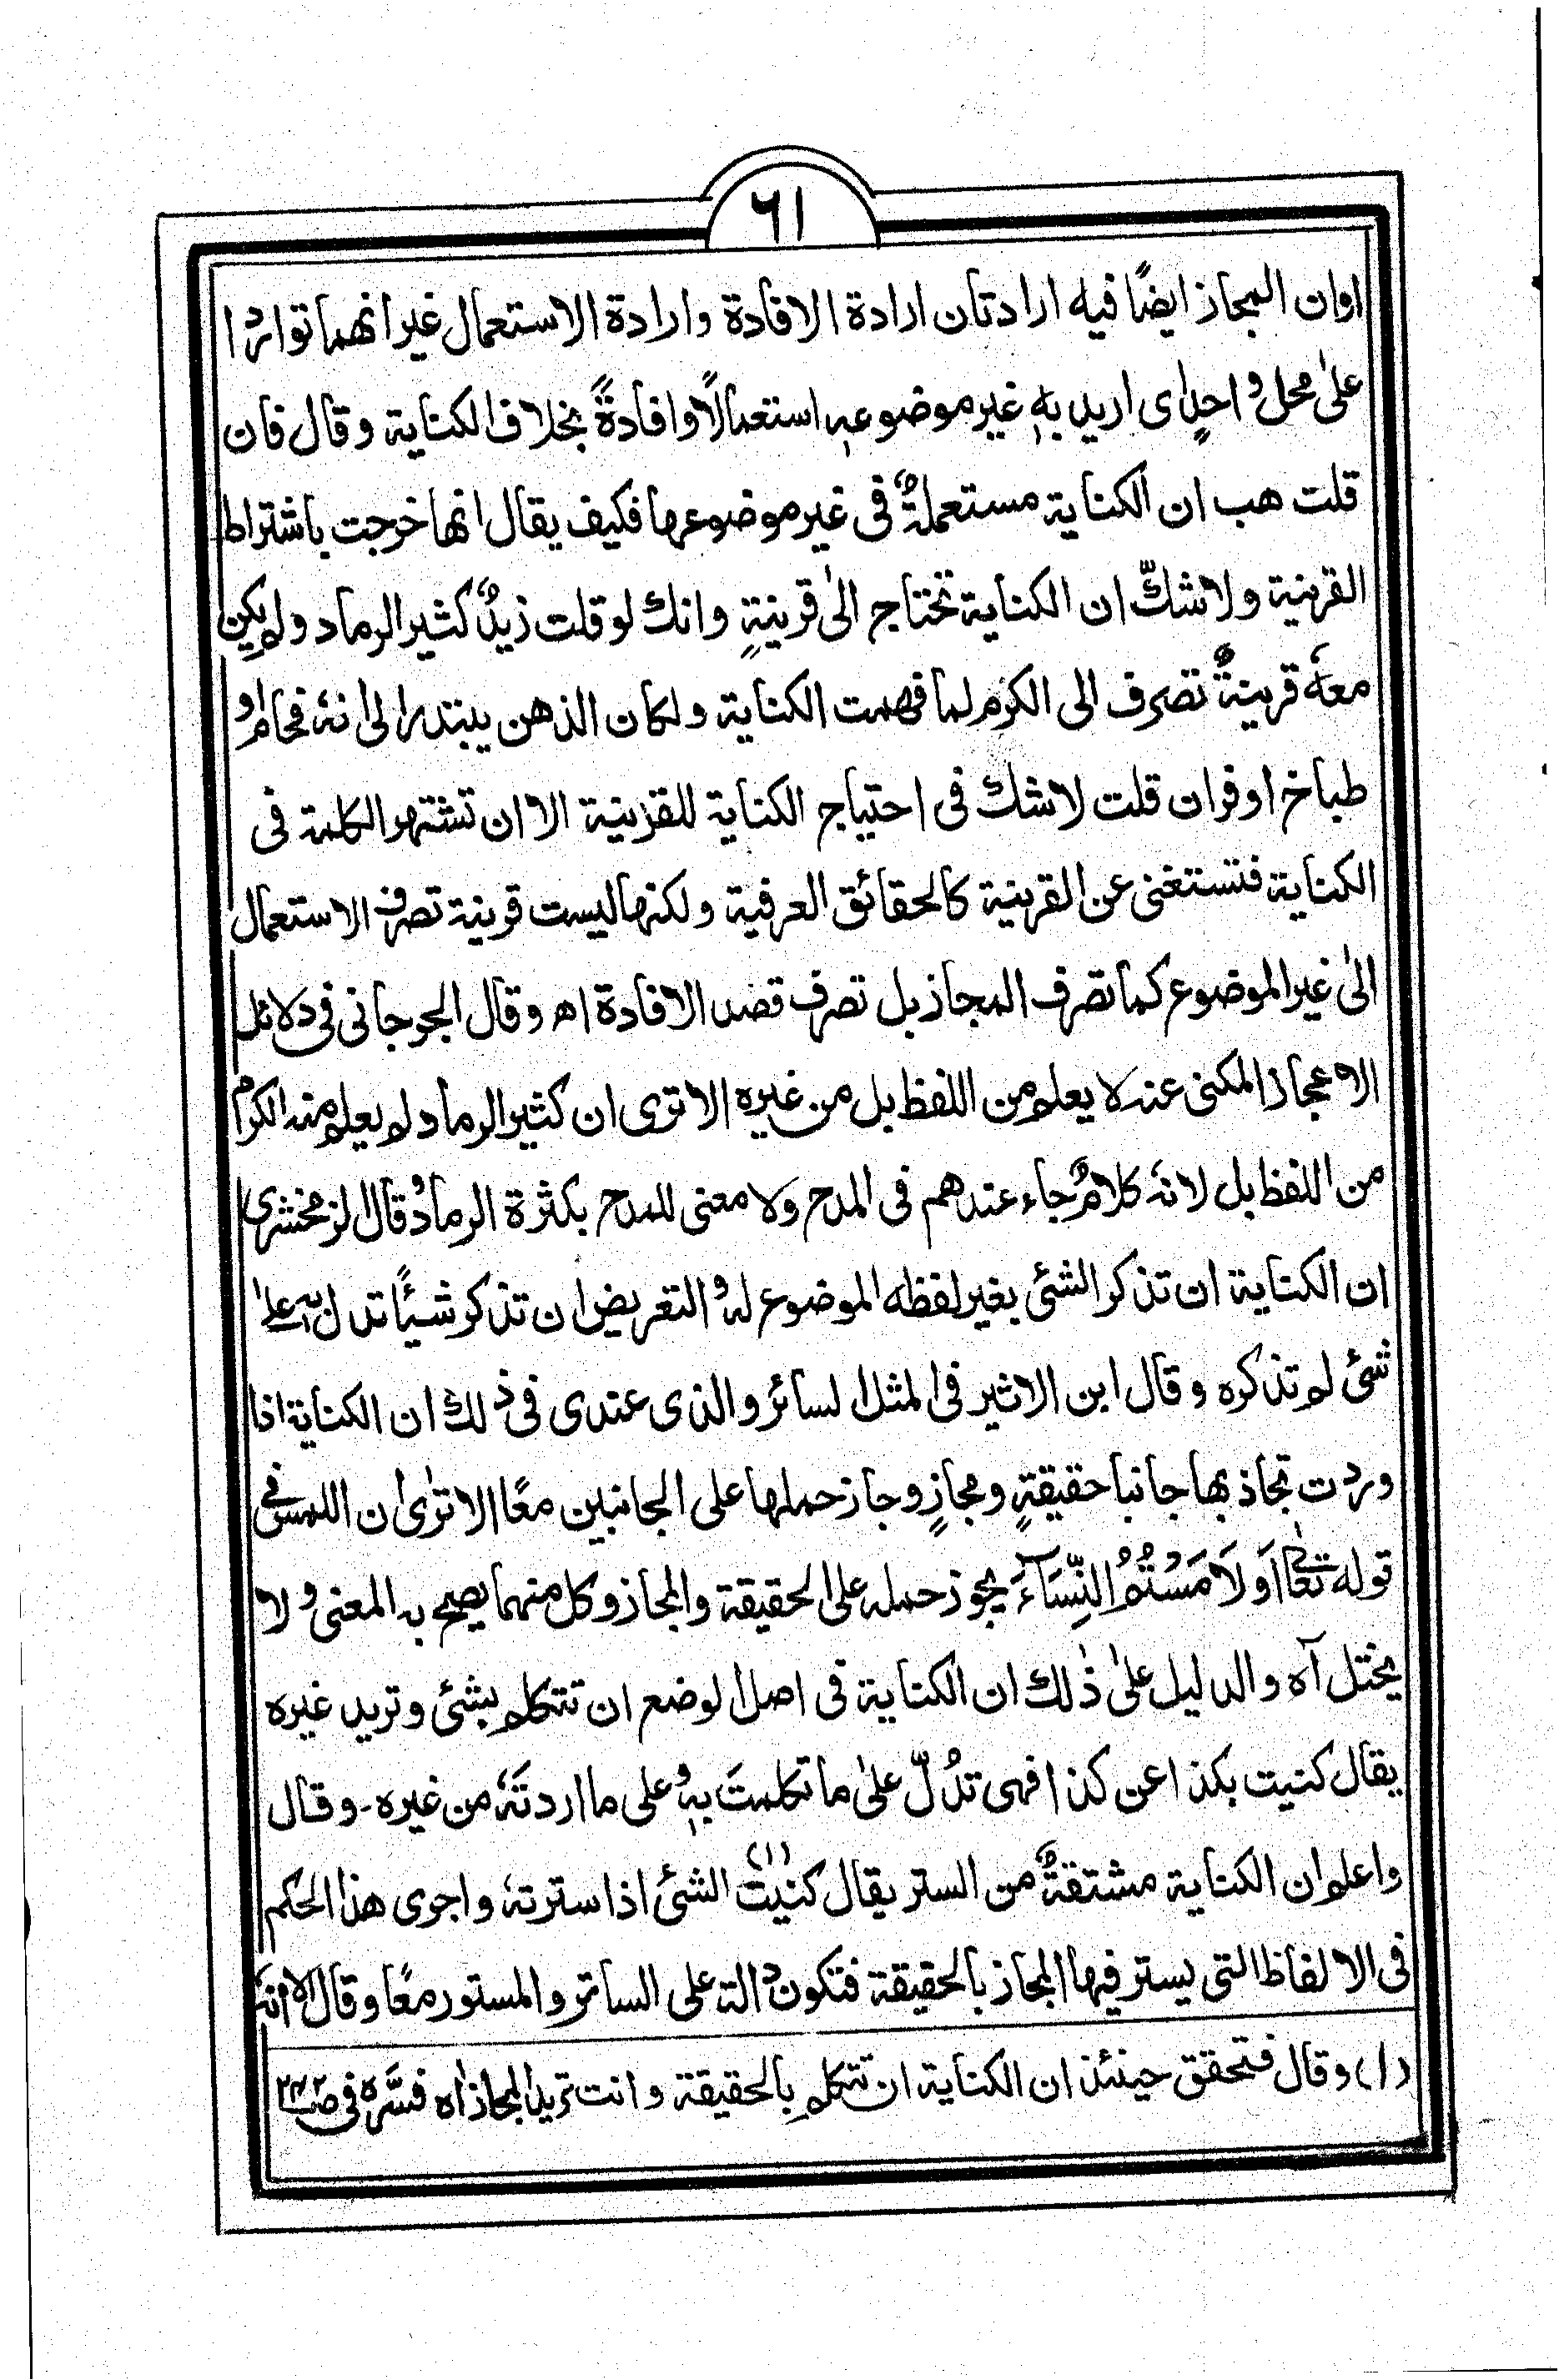 ۶۱
اوان المجاز ایضًا فیه ارادتان ارادة الافادة وارادة الاستعمال غیر انهما تواردا
علیٰ محل واحدٍ ای ارید بهٖ غیر موضوعهٖ استعمالًا وافادةً بخلاف الکنایة وقال فان
قلت هب ان الکنایة مستعملةٌ فی غیر موضوعها فکیف یقال انها خرجت باشتراط
القرینة ولاشكّ ان الکنایة تحتاج الیٰ قرینةٍ وانك لو قلت زیدٌ کثیر الرماد ولم یکن
معهٗ قرینةٌ تصرف الی الکرم لما فهمت الکنایة ولکان الذهن یبتدر الی انهٗ فحام او
طباخ او فران قلت لاشك فی احتیاج الکنایة للقرینة الا ان تشتهر الکلمة فی
الکنایة فتستغنی عن القرینة کالحقائق العرفیة ولکنها لیست قرینة تصرف الاستعمال
الیٰ غیر الموضوع کما تصرف المجاز بل تصرف قصد الافادة اه وقال الجرجانی فی دلائل
الاعجاز المکنی عنه لا یعلم من اللفظ بل من غیره الا تری ان کثیر الرماد لم یعلم منه الکرام
من اللفظ بل لانهٗ کلامٌ جاء عندهم فی المدح ولا معنی للمدح بکثرة الرماد وقال الزمخشری
ان الکنایة ان تذکر الشئی بغیر لفظه الموضوع له والتعریض ان تذکر شیئًا تدل به علیٰ
شئی لم تذکره وقال ابن الاثیر فی المثل السائر والذی عندی فی ذلك ان الکنایة اذا
وردت تجاذبها جانبا حقیقةٍ ومجازٍ وجاز حملها علی الجانبین معًا الا تریٰ ان اللمس فی
قوله تعالیٰ اَوْ لَامَسْتُمُ النِّسَآءَ یجوز حمله علی الحقیقة والمجاز وکل منهما یصح به المعنی ولا
یختل آه والدلیل علیٰ ذٰلك ان الکنایة فی اصل الوضع ان تتکلم بشئی وترید غیره
یقال کنیت بکذا عن کذا فهی تدُلّ علیٰ ما تکلمتَ بهٖ وعلی ما اردتَهٗ من غیره۔ وقال
واعلم ان الکنایة مشتقةٌ من الستر یقال کنیتُ(۱) الشئی اذا سترتهٗ واجری هذا الحکم
فی الالفاظ التی یستر فیها المجاز بالحقیقة فتکون دالة علی الساتر والمستور معًا وقال الا انهٗ
(۱) وقال فتحقق حینئذ ان الکنایة ان تتکلم بالحقیقة وانت ترید المجاز اه فسّره فی